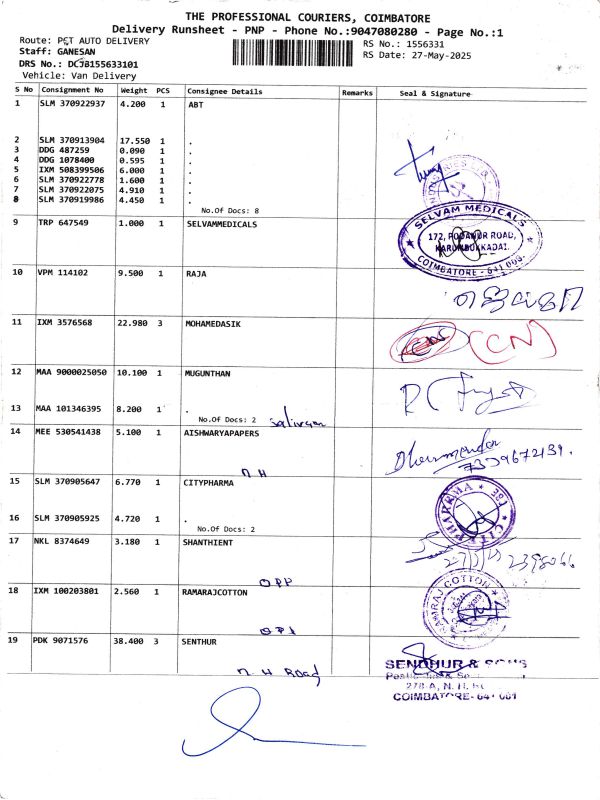 THE PROFESSIONAL COURIERS, COIMBATORE
Delivery Runsheet - PNP - Phone No.:9047080280 - Page No.:1
Route: PCT AUTO DELIVERY
RS No.: 1556331
Staff: GANESAN
RS Date: 27-May-2025
DRS No.: DCJB155633101
Vehicle: Van Delivery
S No Consignment No Weight PCS Consignee Details Remarks Seal & Signature
1 SLM 370922937 4.200 1 ABT
2 SLM 370913904 17.550 1 .
3 DDG 487259 0.090 1 .
4 DDG 1078400 0.595 1 .
5 IXM 508399506 6.000 1 .
6 SLM 370922778 1.600 1 .
7 SLM 370922075 4.910 1 .
8 SLM 370919986 4.450 1 .
No.Of Docs: 8
9 TRP 647549 1.000 1 SELVAMMEDICALS
SELVAM MEDICALS
172, PODANUR ROAD,
KARUMBUKKADAI.
COIMBATORE - 641 008.
10 VPM 114102 9.500 1 RAJA
11 IXM 3576568 22.980 3 MOHAMEDASIK
(CN)
12 MAA 9000025050 10.100 1 MUGUNTHAN
13 MAA 101346395 8.200 1 .
No.Of Docs: 2
14 MEE 530541438 5.100 1 AISHWARYAPAPERS
7339672139.
N H
15 SLM 370905647 6.770 1 CITYPHARMA
CITY PHARMA
16 SLM 370905925 4.720 1 .
No.Of Docs: 2
17 NKL 8374649 3.180 1 SHANTHIENT
OPP
18 IXM 100203801 2.560 1 RAMARAJCOTTON
RAMRAJ COTTON
19 PDK 9071576 38.400 3 SENTHUR
N H Road
SENDHUR & SONS
278-A, N. H.
COIMBATORE - 641 001